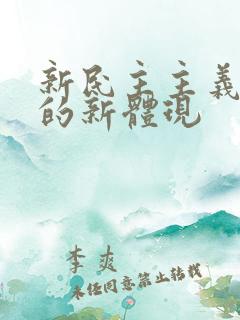 新民主主義
的新體現
李爽
未经同意禁止转载